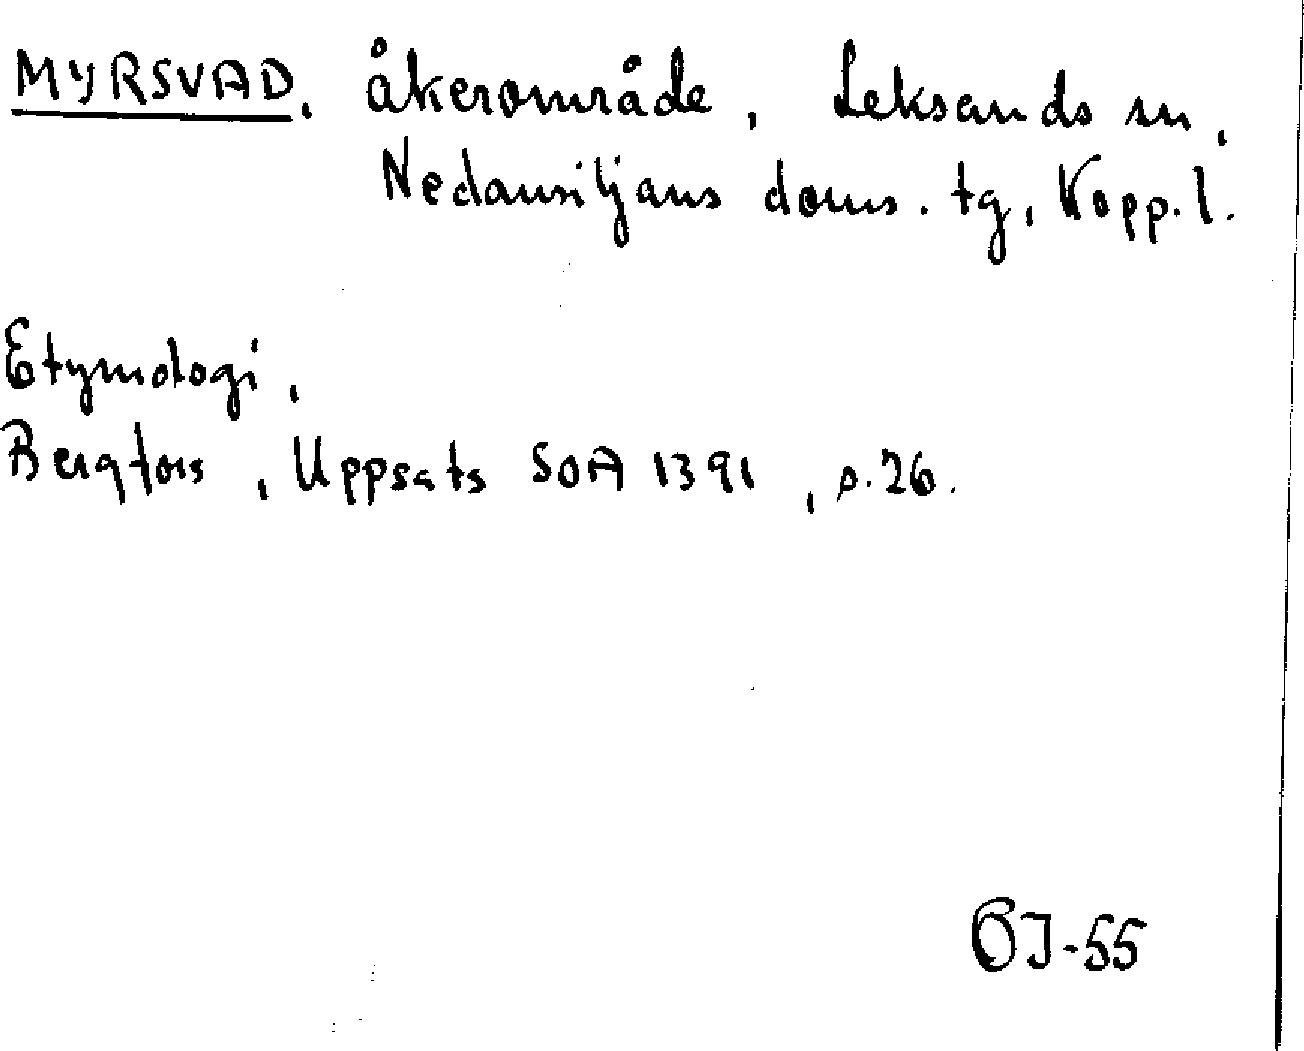 MYRSVAD, åkerområde, Leksands sn,
Nedansiljans doms. tg, Kopp. l.
Etymologi,
Bergfors, Uppsats SOA 1391, s. 26.
ÖJ-55